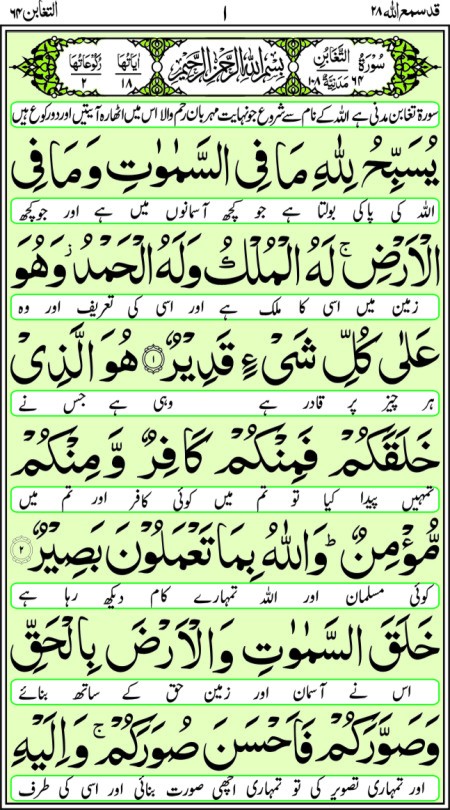 قد سمع الله ۲۸ ۱ التغابن ۶۴
سُوْرَةُ التَّغَابُنِ ۶۴ مَدَنِيَّةٌ ۱۰۸ بِسْمِ اللّٰهِ الرَّحْمٰنِ الرَّحِيْمِ اٰيَاتُهَا ۱۸ رُكُوْعَاتُهَا ۲
سورۃ تغابن مدنی ہے اللہ کے نام سے شروع جو نہایت مہربان رحم والا اس میں اٹھارہ آیتیں اور دو رکوع ہیں
يُسَبِّحُ لِلّٰهِ مَا فِي السَّمٰوٰتِ وَمَا فِي
اللہ کی پاکی بولتا ہے جو کچھ آسمانوں میں ہے اور جو کچھ
الْاَرْضِ ۚ لَهُ الْمُلْكُ وَلَهُ الْحَمْدُ ۡ وَهُوَ
زمین میں اسی کا ملک ہے اور اسی کی تعریف اور وہ
عَلٰى كُلِّ شَيْءٍ قَدِيْرٌ ۝۱ هُوَ الَّذِيْ
ہر چیز پر قادر ہے وہی ہے جس نے
خَلَقَكُمْ فَمِنْكُمْ كَافِرٌ وَّمِنْكُمْ
تمہیں پیدا کیا تو تم میں کوئی کافر اور تم میں
مُّؤْمِنٌ ؕ وَاللّٰهُ بِمَا تَعْمَلُوْنَ بَصِيْرٌ ۝۲
کوئی مسلمان اور اللہ تمہارے کام دیکھ رہا ہے
خَلَقَ السَّمٰوٰتِ وَالْاَرْضَ بِالْحَقِّ
اس نے آسمان اور زمین حق کے ساتھ بنائے
وَصَوَّرَكُمْ فَاَحْسَنَ صُوَرَكُمْ ۚ وَاِلَيْهِ
اور تمہاری تصویر کی تو تمہاری اچھی صورت بنائی اور اسی کی طرف